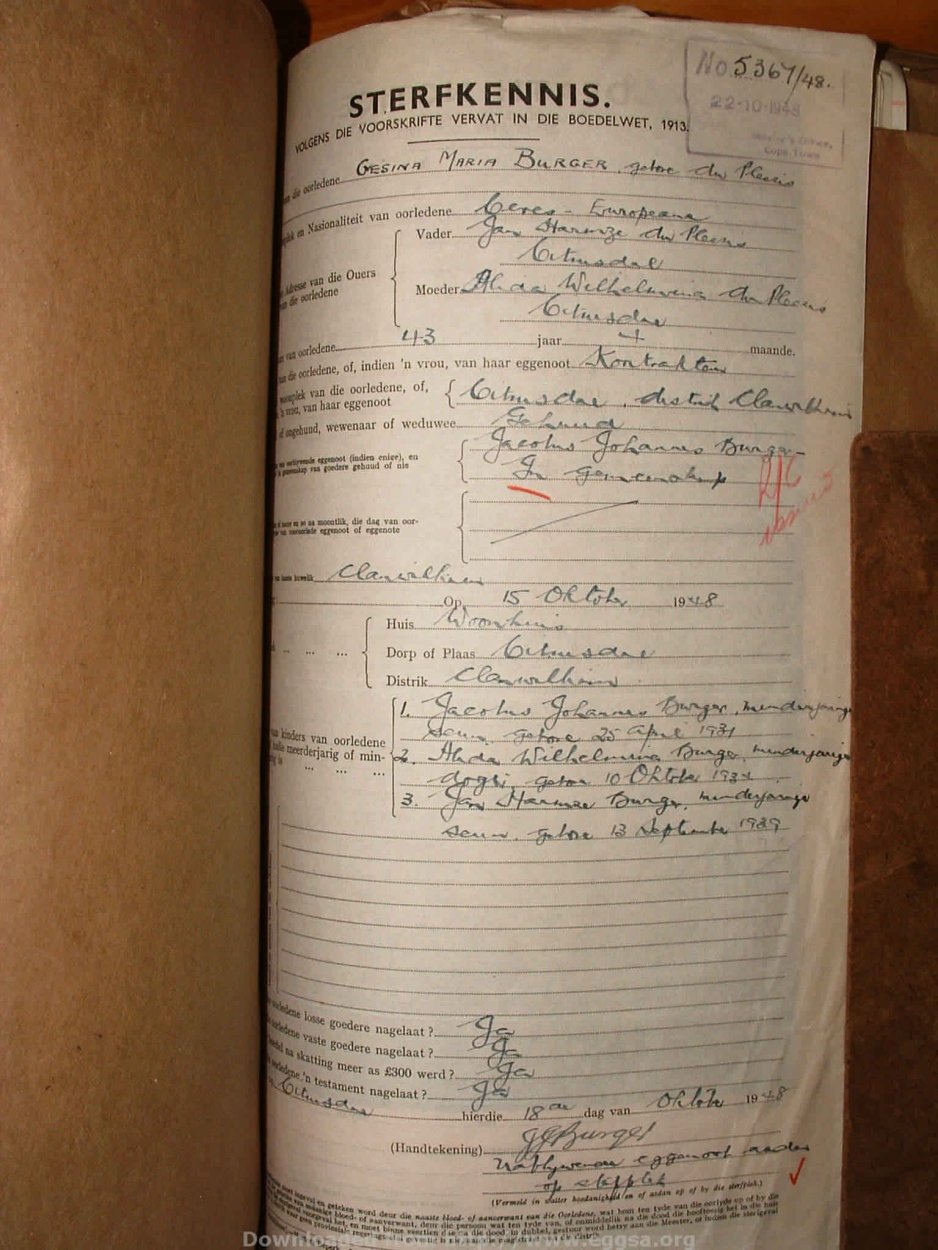 No 5367/48.
22-10-1948
Cape Town
STERFKENNIS.
VOLGENS DIE VOORSKRIFTE VERVAT IN DIE BOEDELWET, 1913.
die oorledene GESINA MARIA BURGER, gebore du Plessis
en Nasionaliteit van oorledene Ceres - Europeaan
Vader Jan Harmze du Plessis
Citrusdal
Adresse van die Ouers
van die oorledene
Moeder Alida Wilhelmina du Plessis
Citrusdal
van oorledene 43 jaar 4 maande.
die oorledene, of, indien 'n vrou, van haar eggenoot Kontrakteur
van die oorledene, of, Citrusdal, distrik Clanwilliam
'n vrou, van haar eggenoot
of ongehuud, wewenaar of weduwee Gehuud
Jacobus Johannes Burger
eggenoot (indien enige), en
van goedere gehuud of nie
In gemeenskap
moontlik, die dag van oor-
eggenoot of eggenote
huwelik Clanwilliam
Op 15 Oktober 1948
Huis Woonhuis
Dorp of Plaas Citrusdal
Distrik Clanwilliam
1. Jacobus Johannes Burger, minderjarige
seun, gebore 25 April 1931
kinders van oorledene
meerderjarig of min-
2. Alida Wilhelmina Burger, minderjarige
dogter, gebore 10 Oktober
3. Jan Harmze Burger, minderjarige
seun, gebore 13 September 1939
oorledene losse goedere nagelaat? Ja
oorledene vaste goedere nagelaat? Ja
na skatting meer as £300 werd? Ja
oorledene 'n testament nagelaat? Ja
Citrusdal hierdie 18de dag van Oktober 1948
(Handtekening) JJBurger
Nablywende eggenoot
op sterfplek
(Vermeld in watter hoedanigheid en of aldan op of by die sterfplek.)
Downloaded from http://www.eggsa.org